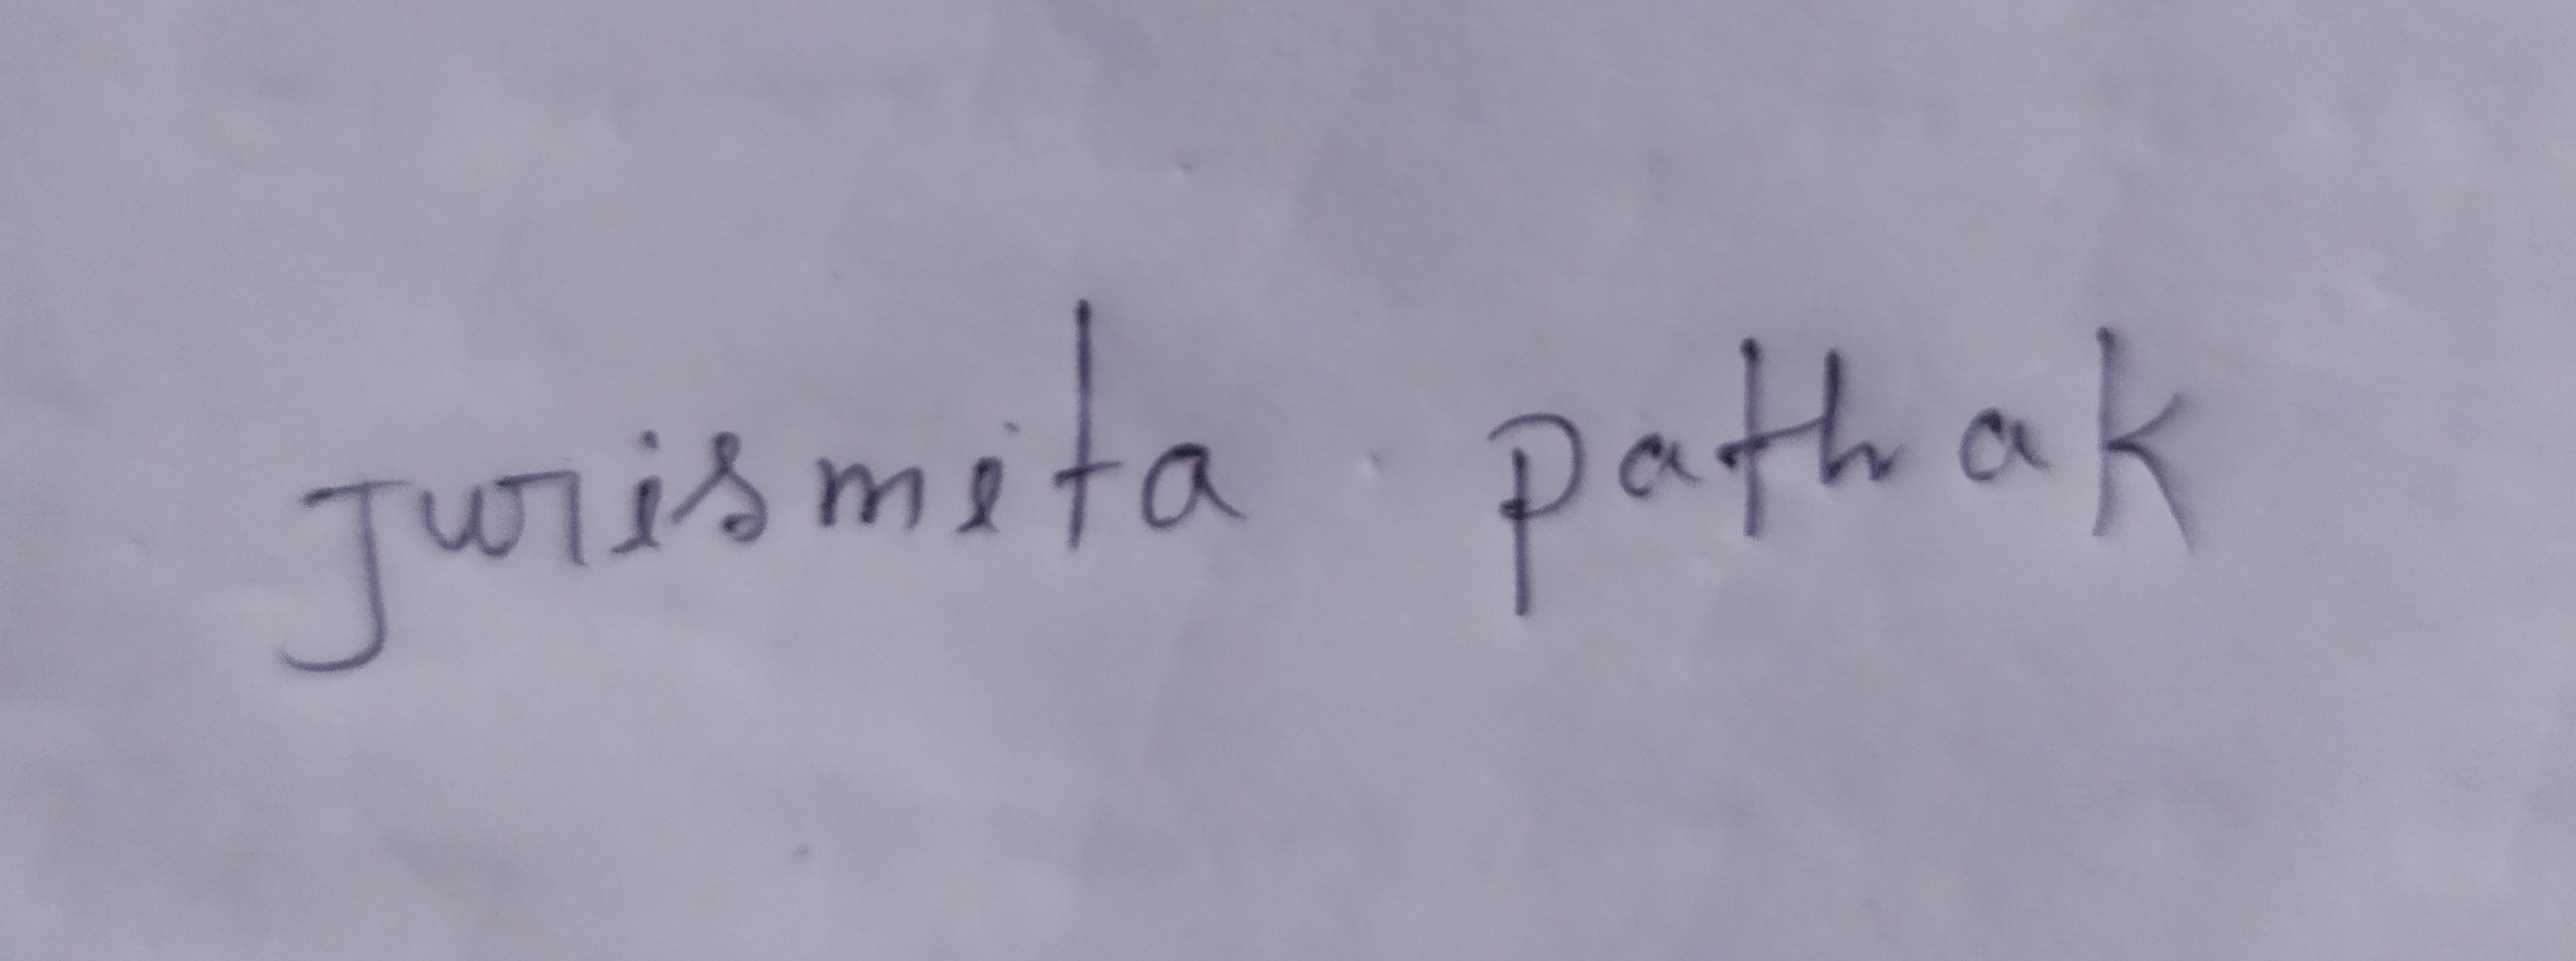 Jurismita pathak